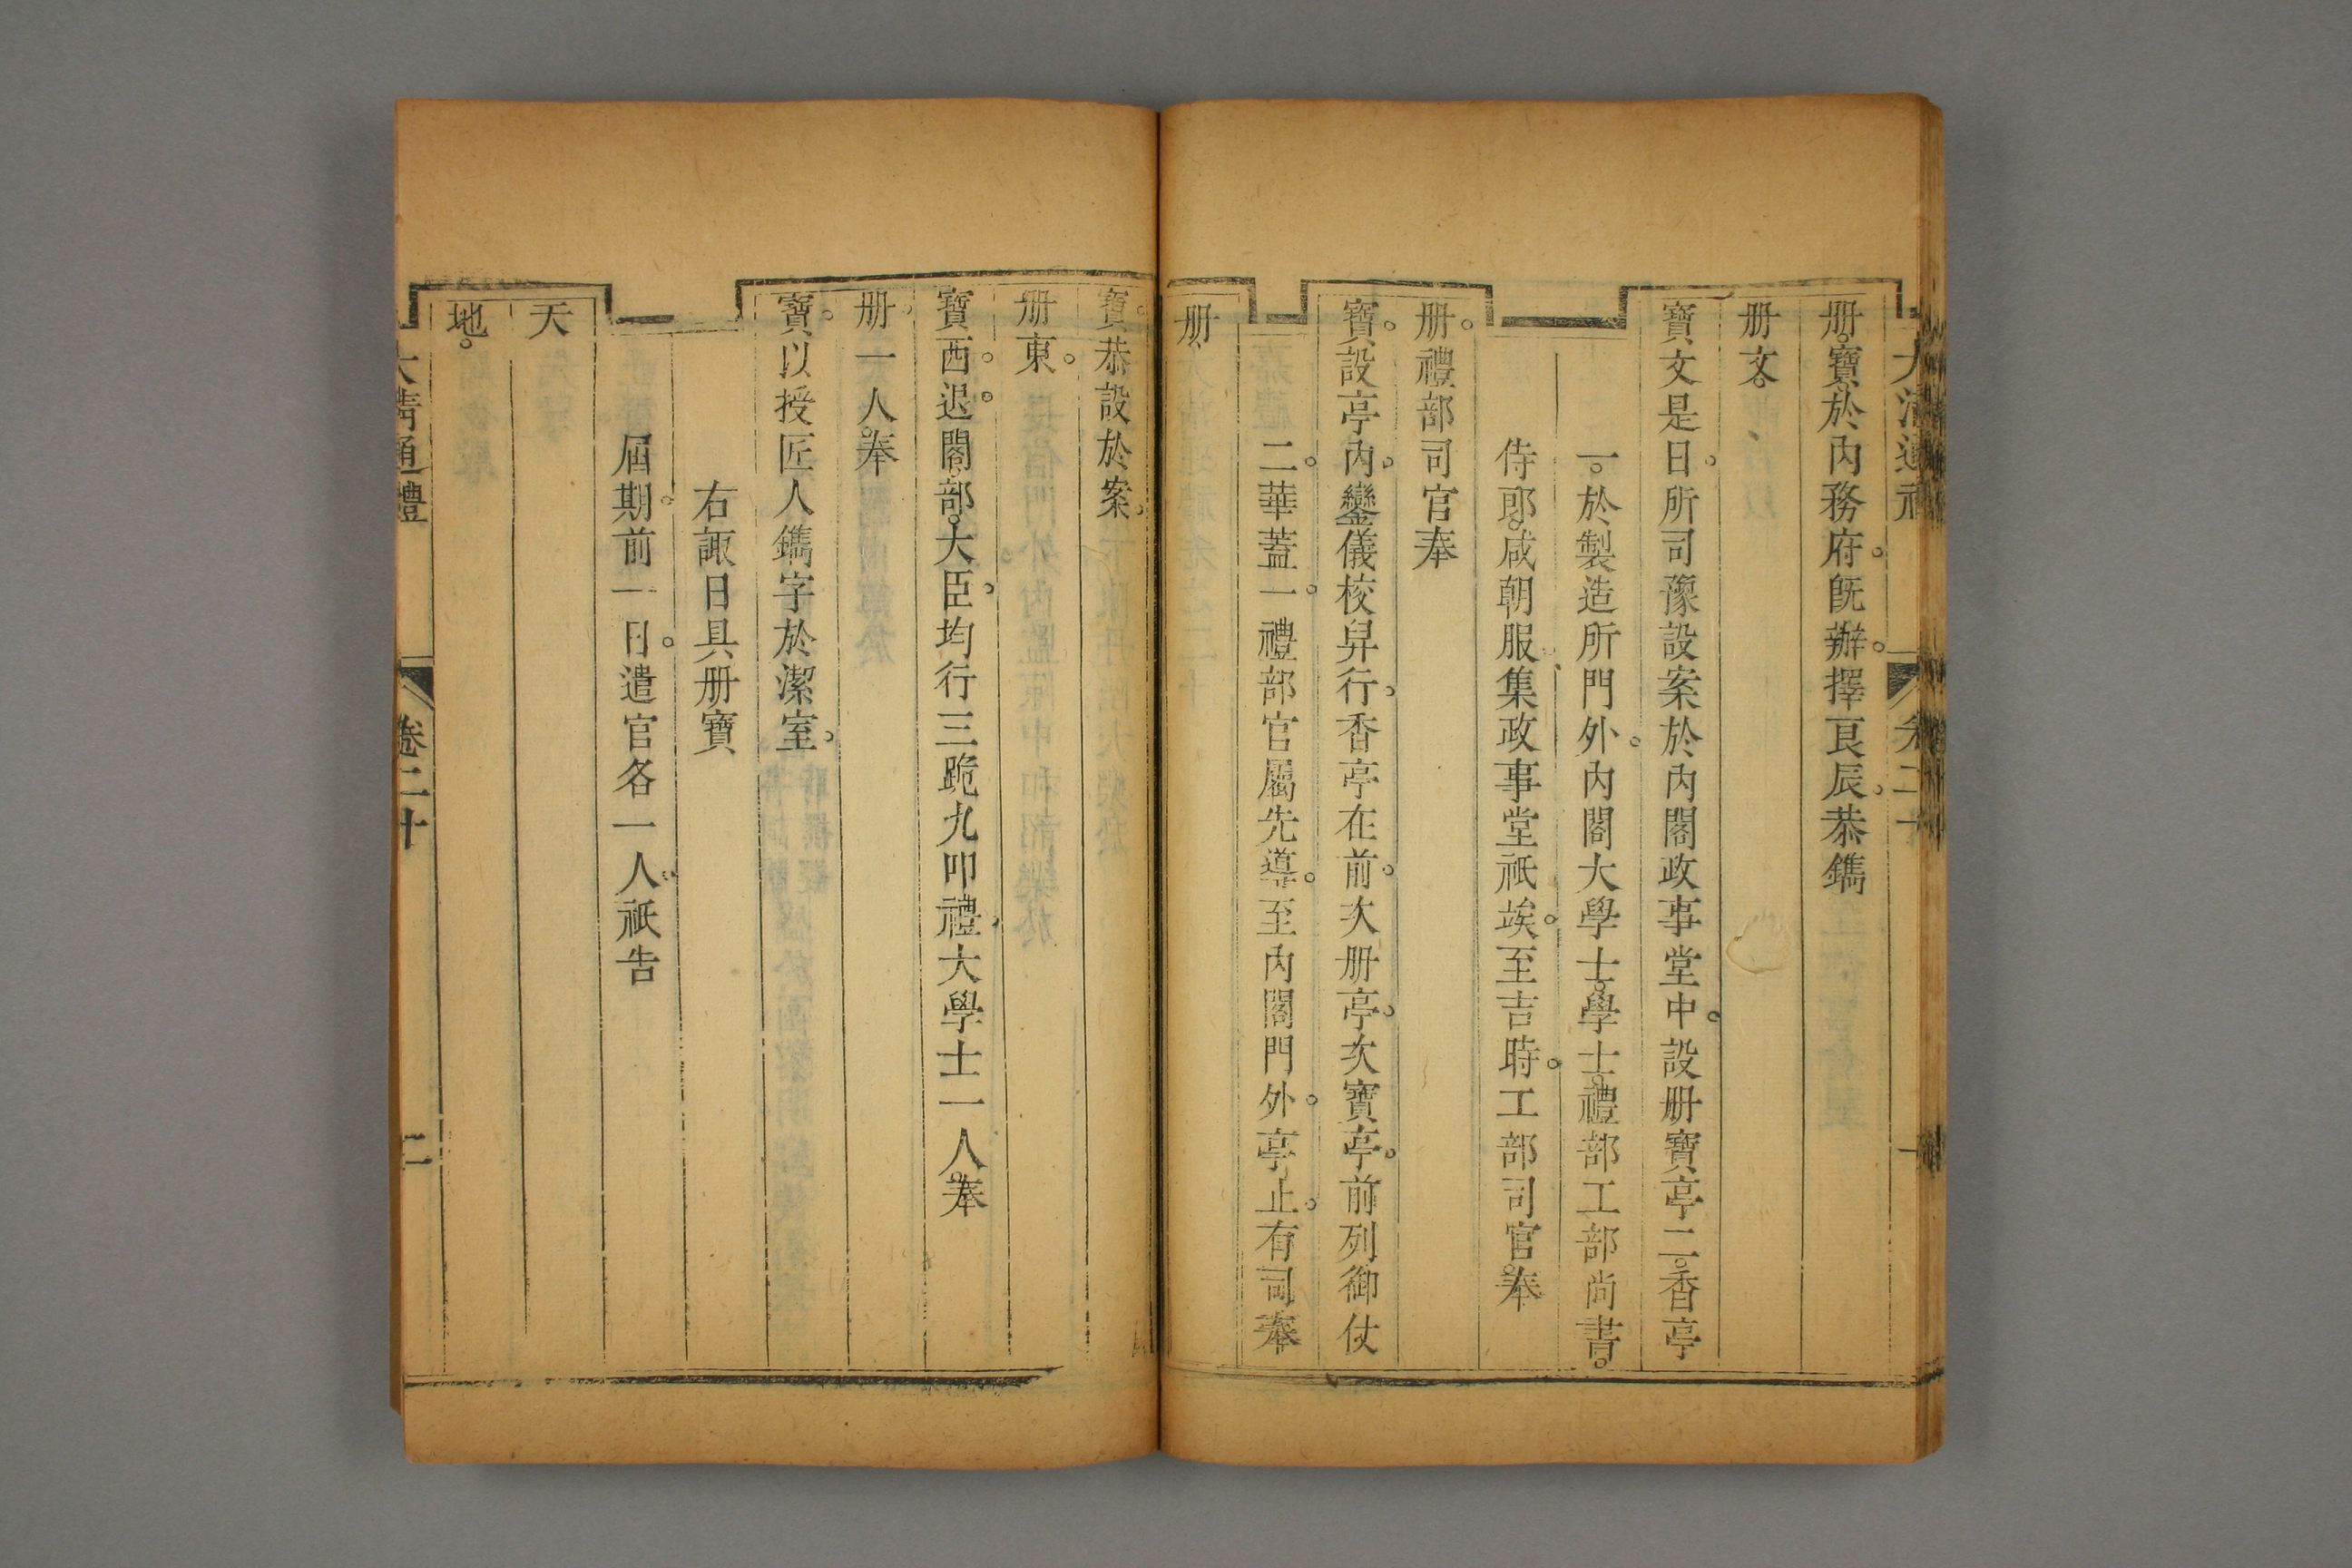 大清通禮 卷二十 一
册寶於內務府。旣辦。擇良辰。恭鐫
册文。
寶文是日。所司豫設案於內閣政事堂中。設册寶亭二。香亭
一。於製造所門外。內閣大學士。學士。禮部工部尚書。
侍郎。咸朝服。集政事堂祇竢。至吉時。工部司官。奉
册。禮部司官奉
寶。設亭內。鑾儀校舁行。香亭在前。次册亭。次寶亭。前列御仗
二。華蓋一。禮部官屬先導。至內閣門外。亭止。有司奉
册、
寶。恭設於案。
册東。
寶西。退。閣部。大臣。均行三跪九叩禮。大學士一人。奉
册。一人。奉
寶。以授匠人鐫字於潔室。
右諏日具册寶
屆期。前一日。遣官各一人。祇告
天
地。
大清通禮 卷二十 二